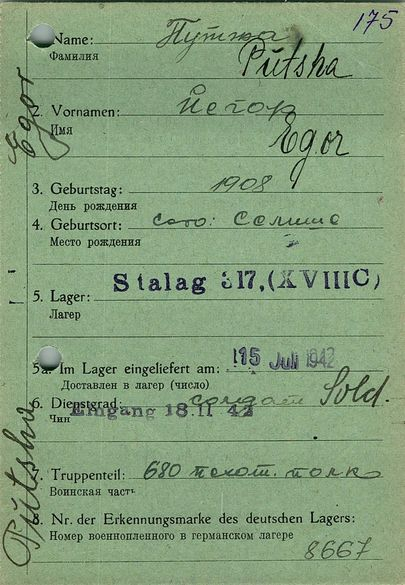 175
1. Name: Путша
Фамилия Pŭtsha
2. Vornamen: Йегор
Имя Egor
3. Geburtstag: 1908
День рождения
4. Geburtsort:
Место рождения
Stalag 317, (XVIIIC)
5. Lager:
Лагер
5a. Im Lager eingeliefert am: 15 Juli 1942
Доставлен в лагер (число)
6. Dienstgrad: солдат Sold.
Чин Eingang 18 11 42
7. Truppenteil: 680 пехот. полк
Воинская часть
8. Nr. der Erkennungsmarke des deutschen Lagers:
Номер военнопленного в германском лагере
8667
Egor
Pŭtsha